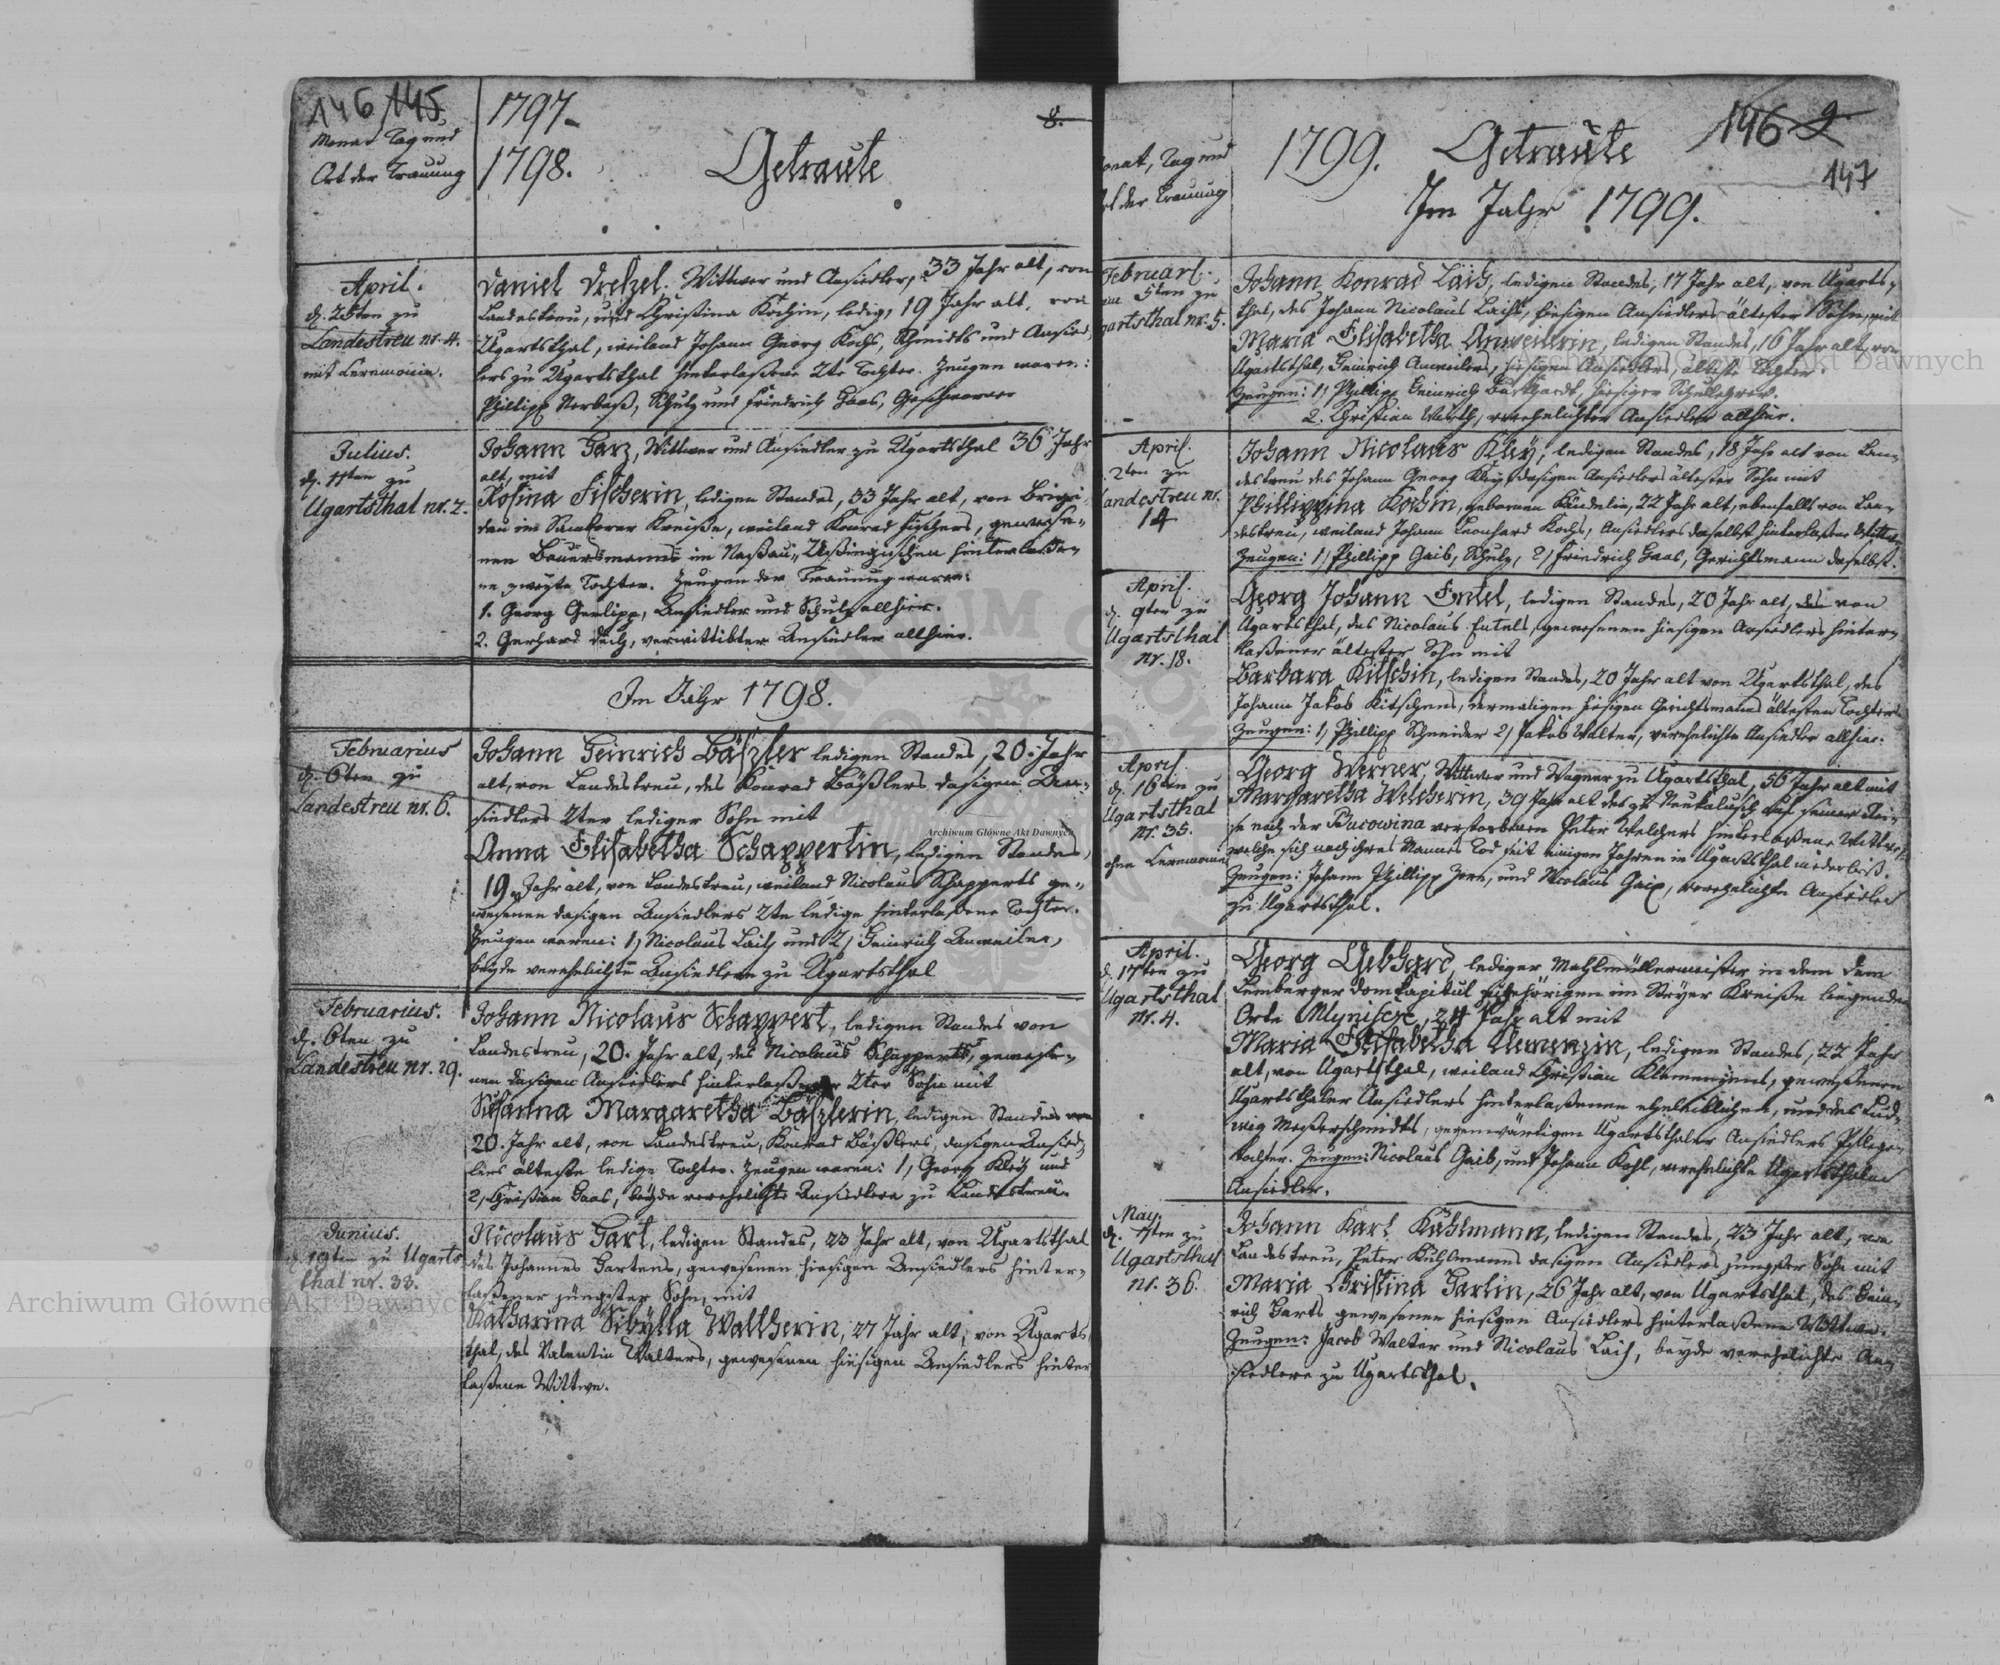 146 145
Monat Tag und
Ort der Trauung
1797.
1798.
Getraute
8.
April.
d. 25ten zu
Landestreu nr. 4.
mit Ceremonie.
Daniel Dretzel. Wittwer und Ansiedler, 33 Jahr alt, von
Landestreu, und Christina Kochin, ledig, 19 Jahr alt, von
Ugartsthal, weiland Johann Georg Kochs, Schmidts und Ansied
lers zu Ugartsthal hinterlaßene 2te Tochter. Zeugen waren:
Philipp Nerbaß, Schulz und Friedrich Haas, Geschworner
Julius.
d. 11ten zu
Ugartsthal nr. 2.
Johann Harz, Wittwer und Ansiedler zu Ugartsthal 36 Jahr
alt, mit
Rosina Fischerin, ledigen Standes, 33 Jahr alt, von Brigi-
dau im Samborer Kreiße, weiland Konrad Fischers, gewese-
nen Bauersmanns in Naßau Ußingischen hinterlaße-
ne zweyte Tochter. Zeugen der Trauung waren:
1. Georg Gerlipp, Ansiedler und Schulz allhier.
2. Gerhard Deitz, verwittibter Ansiedler allhier.
Im Jahr 1798.
Februarius
d. 6ten zu
Landestreu nr. 6.
Johann Heinrich Bäßler ledigen Standes, 20. Jahr
alt, von Landestreu, des Konrad Bäßlers dasigen An-
siedlers 2ter lediger Sohn mit
Anna Elisabetha Schappertin, ledigen Standes,
19 Jahr alt, von Landestreu, weiland Nicolaus Schapperts ge-
wesenen dasigen Ansiedlers 2te ledige hinterlaßene Tochter.
Zeugen waren: 1, Nicolaus Laih und 2, Heinrich Anweiler,
beyde verehelichte Ansiedler zu Ugartsthal
Februarius.
d. 6ten zu
Landestreu nr. 29.
Johann Nicolaus Schappert, ledigen Standes von
Landestreu, 20. Jahr alt, des Nicolaus Schapperts, gewese-
nen dasigen Ansiedlers hinterlaßener 2ter Sohn mit
Susanna Margaretha Bäßlerin, ledigen Standes von
20. Jahr alt, von Landestreu, Konrad Bäßlers, dasigen Ansied-
lers älteste ledige Tochter. Zeugen waren: 1, Georg Kley und
2, Christian Haas, beyde verehelichte Ansiedler zu Landestreu.
Junius.
d. 19ten zu Ugarts
thal nr. 33.
Nicolaus Hart, ledigen Standes, 23 Jahr alt, von Ugartsthal
des Johannes Hartens, gewesenen hiesigen Ansiedlers hinter-
laßener jüngster Sohn, mit
Katharina Sibÿlla Waltherin, 27 Jahr alt, von Ugarts
thal, des Valentin Walters, gewesenen hiesigen Ansiedlers hinter
laßene Wittwe.
onat, Tag und
Ort der Trauung
1799. Getraute
Im Jahr 1799.
146 9
147
Februari.
5ten zu
gartsthal nr. 5.
Johann Konrad Laih, ledigen Standes, 17 Jahr alt, von Ugarts,
thal, des Johann Nicolaus Laihs, hiesigen Ansiedlers ältester Sohn, mit
Maria Elisabetha Anweilerin, ledigen Standes, 16 Jahr alt, von
Ugartsthal, Heinrich Anweilers, hiesigen Ansiedlers, älteste Tochter.
Zeugen: 1, Phillipp Heinrich Burkhardt, hiesiger Schullehrer.
2. Christian Wirth, verehelichter Ansiedler allhier.
April.
2ten zu
Landestreu nr.
14
Johann Nicolaus Kley, ledigen Standes, 18 Jahr alt von Lan-
destreu des Johann Georg Kley dasigen Ansiedlers ältester Sohn mit
Philippina Kochin, gebornen Kändelin, 22 Jahr alt, ebenfalls von Lan-
destreu, weiland Johann Leonhard Kochs, Ansiedlers daselbst hinterlaßene Wittwe
Zeugen: 1, Phillipp Haib, Schulz, 2, Friedrich Haas, Gerichtsmann daselbst.
April.
d. 9ten zu
Ugartsthal
nr. 18.
Georg Johann Entel, ledigen Standes, 20 Jahr alt, von
Ugartsthal, des Nicolaus Entels, gewesenen hiesigen Ansiedlers hinter-
laßener ältester Sohn mit
Barbara Kitschin, ledigen Standes, 20 Jahr alt von Ugartsthal, des
Johann Jakob Kitschens, dermaligen hiesigen Gerichtsmanns ältesten Tochter
Zeugen: 1, Phillipp Schneider 2, Jakob Walter, verehelichte Ansiedler allhier.
April
d. 16ten zu
Ugartsthal
nr. 35.
ohne Ceremonie
Georg Werner, Wittwer und Wagner zu Ugartsthal, 56 Jahr alt mit
Margaretha Welcherin, 39 Jahr alt des zu Neukalusch auf seiner Rei-
se nach der Bucowina verstorbenen Peter Welchers hinterlaßene Wittwe
welche sich nach ihres Mannes Tod seit einigen Jahren in Ugartsthal niederließ.
Zeugen: Johann Phillipp, und Nicolaus, verehelichte Ansiedler
zu Ugartsthal.
April.
d. 17ten zu
Ugartsthal
nr. 4.
Georg Gebhard, lediger Mahlmüllermeister in dem dem
Lemberger Domkapitul zugehörigen im Stryer Kreiße liegenden
Orte Mlynisce, 24 Jahr alt mit
Maria Elisabetha Klemenzin, ledigen Standes, 22 Jahr
alt, von Ugartsthal, weiland Christian Klemenzens, gewesenen
Ugartsthaler Ansiedlers hinterlaßenen eheleiblichen, und des Lud-
wig Meßerschmidts, gegenwärtigen Ugartsthaler Ansiedlers Pflege-
tochter. Zeugen: Nicolaus Haib, und Johann Kohl, verehelichte Ugartsthaler
Ansiedler.
May
d. 7ten zu
Ugartsthal
nr. 36.
Johann Karl Kuhlmann, ledigen Standes, 23 Jahr alt, von
Landestreu, Peter Kuhlmanns dasigen Ansiedlers jüngster Sohn mit
Maria Christina Hartin, 26 Jahr alt, von Ugartsthal, des Hein-
rich Harts gewesenen hiesigen Ansiedlers hinterlaßene Wittwe.
Zeugen: Jacob Walter und Nicolaus Laih, beyde verehelichte An-
siedler zu Ugartsthal.
Archiwum Główne Akt Dawnych
Archiwum Główne Akt Dawnych
Archiwum Główne Akt Dawnych